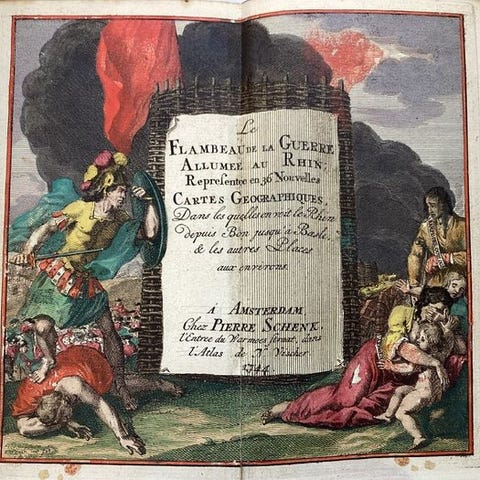 Le
FLAMBEAU DE LA GUERRE
ALLUMEE AU RHIN;
Representee en 36 Nouvelles
CARTES GEOGRAPHIQUES,
Dans les quelles on voit le Rhin
depuis Bon jusqu'a Basle,
& les autres Places
aux environs.
À AMSTERDAM,
Chez PIERRE SCHENK,
l'Entree du Warmoes straat, dans
l'Atlas de N. Visscher
1744